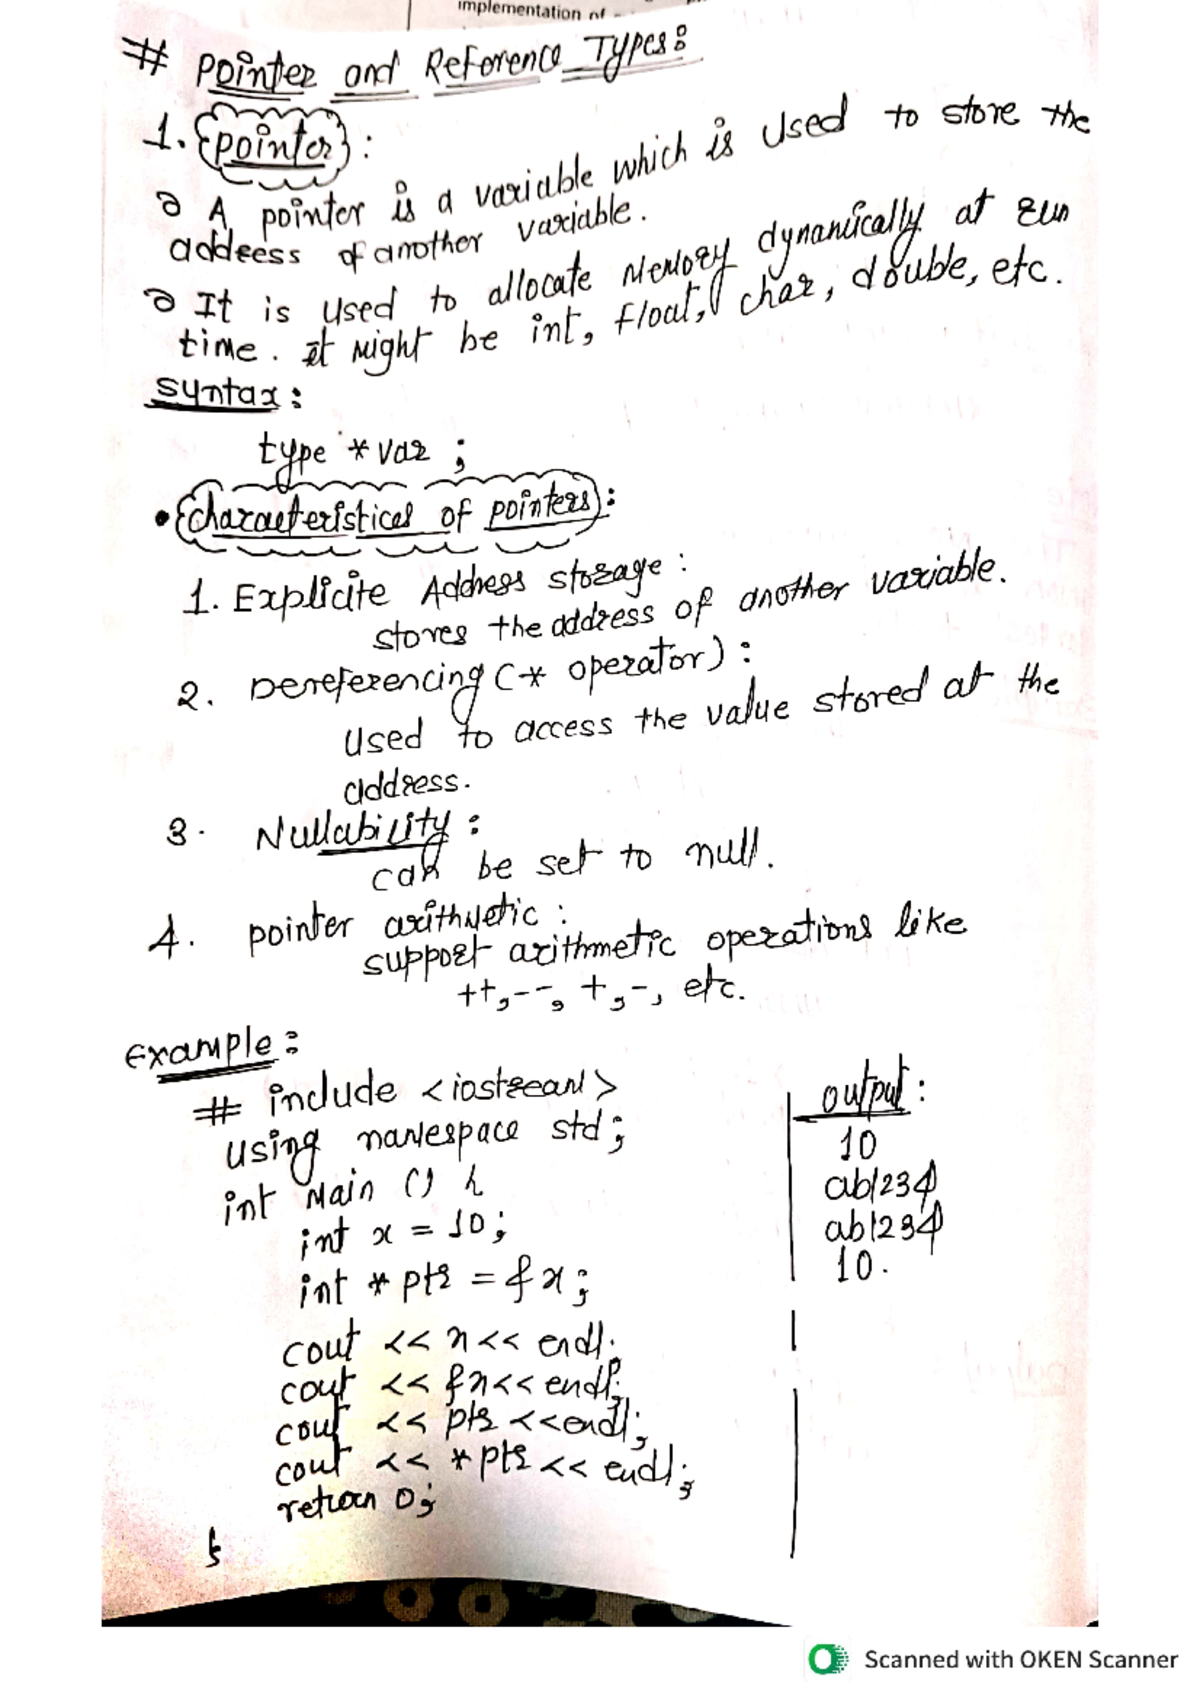 implementation of
# Pointer and Reference Types:
1. pointer :
A pointer is a variable which is used to store the
address of another variable.
It is used to allocate Memory dynamically at run
time. It might be int, float, char, double, etc.
syntax :
type *var ;
• Characteristics of pointers :
1. Explicite Address storage :
stores the address of another variable.
2. Dereferencing (* operator) :
Used to access the value stored at the
address.
3. Nullability :
can be set to null.
4. pointer arithmetic :
support arithmetic operations like
++, --, +, -, etc.
Example :
# include <iostream>
using namespace std ;
int Main () {
int x = 10 ;
int * ptr = &x ;
cout << x << endl;
cout << &x << endl;
cout << ptr << endl;
cout << * ptr << endl;
return 0 ;
}
output :
10
ab1234
ab1234
10.
Scanned with OKEN Scanner